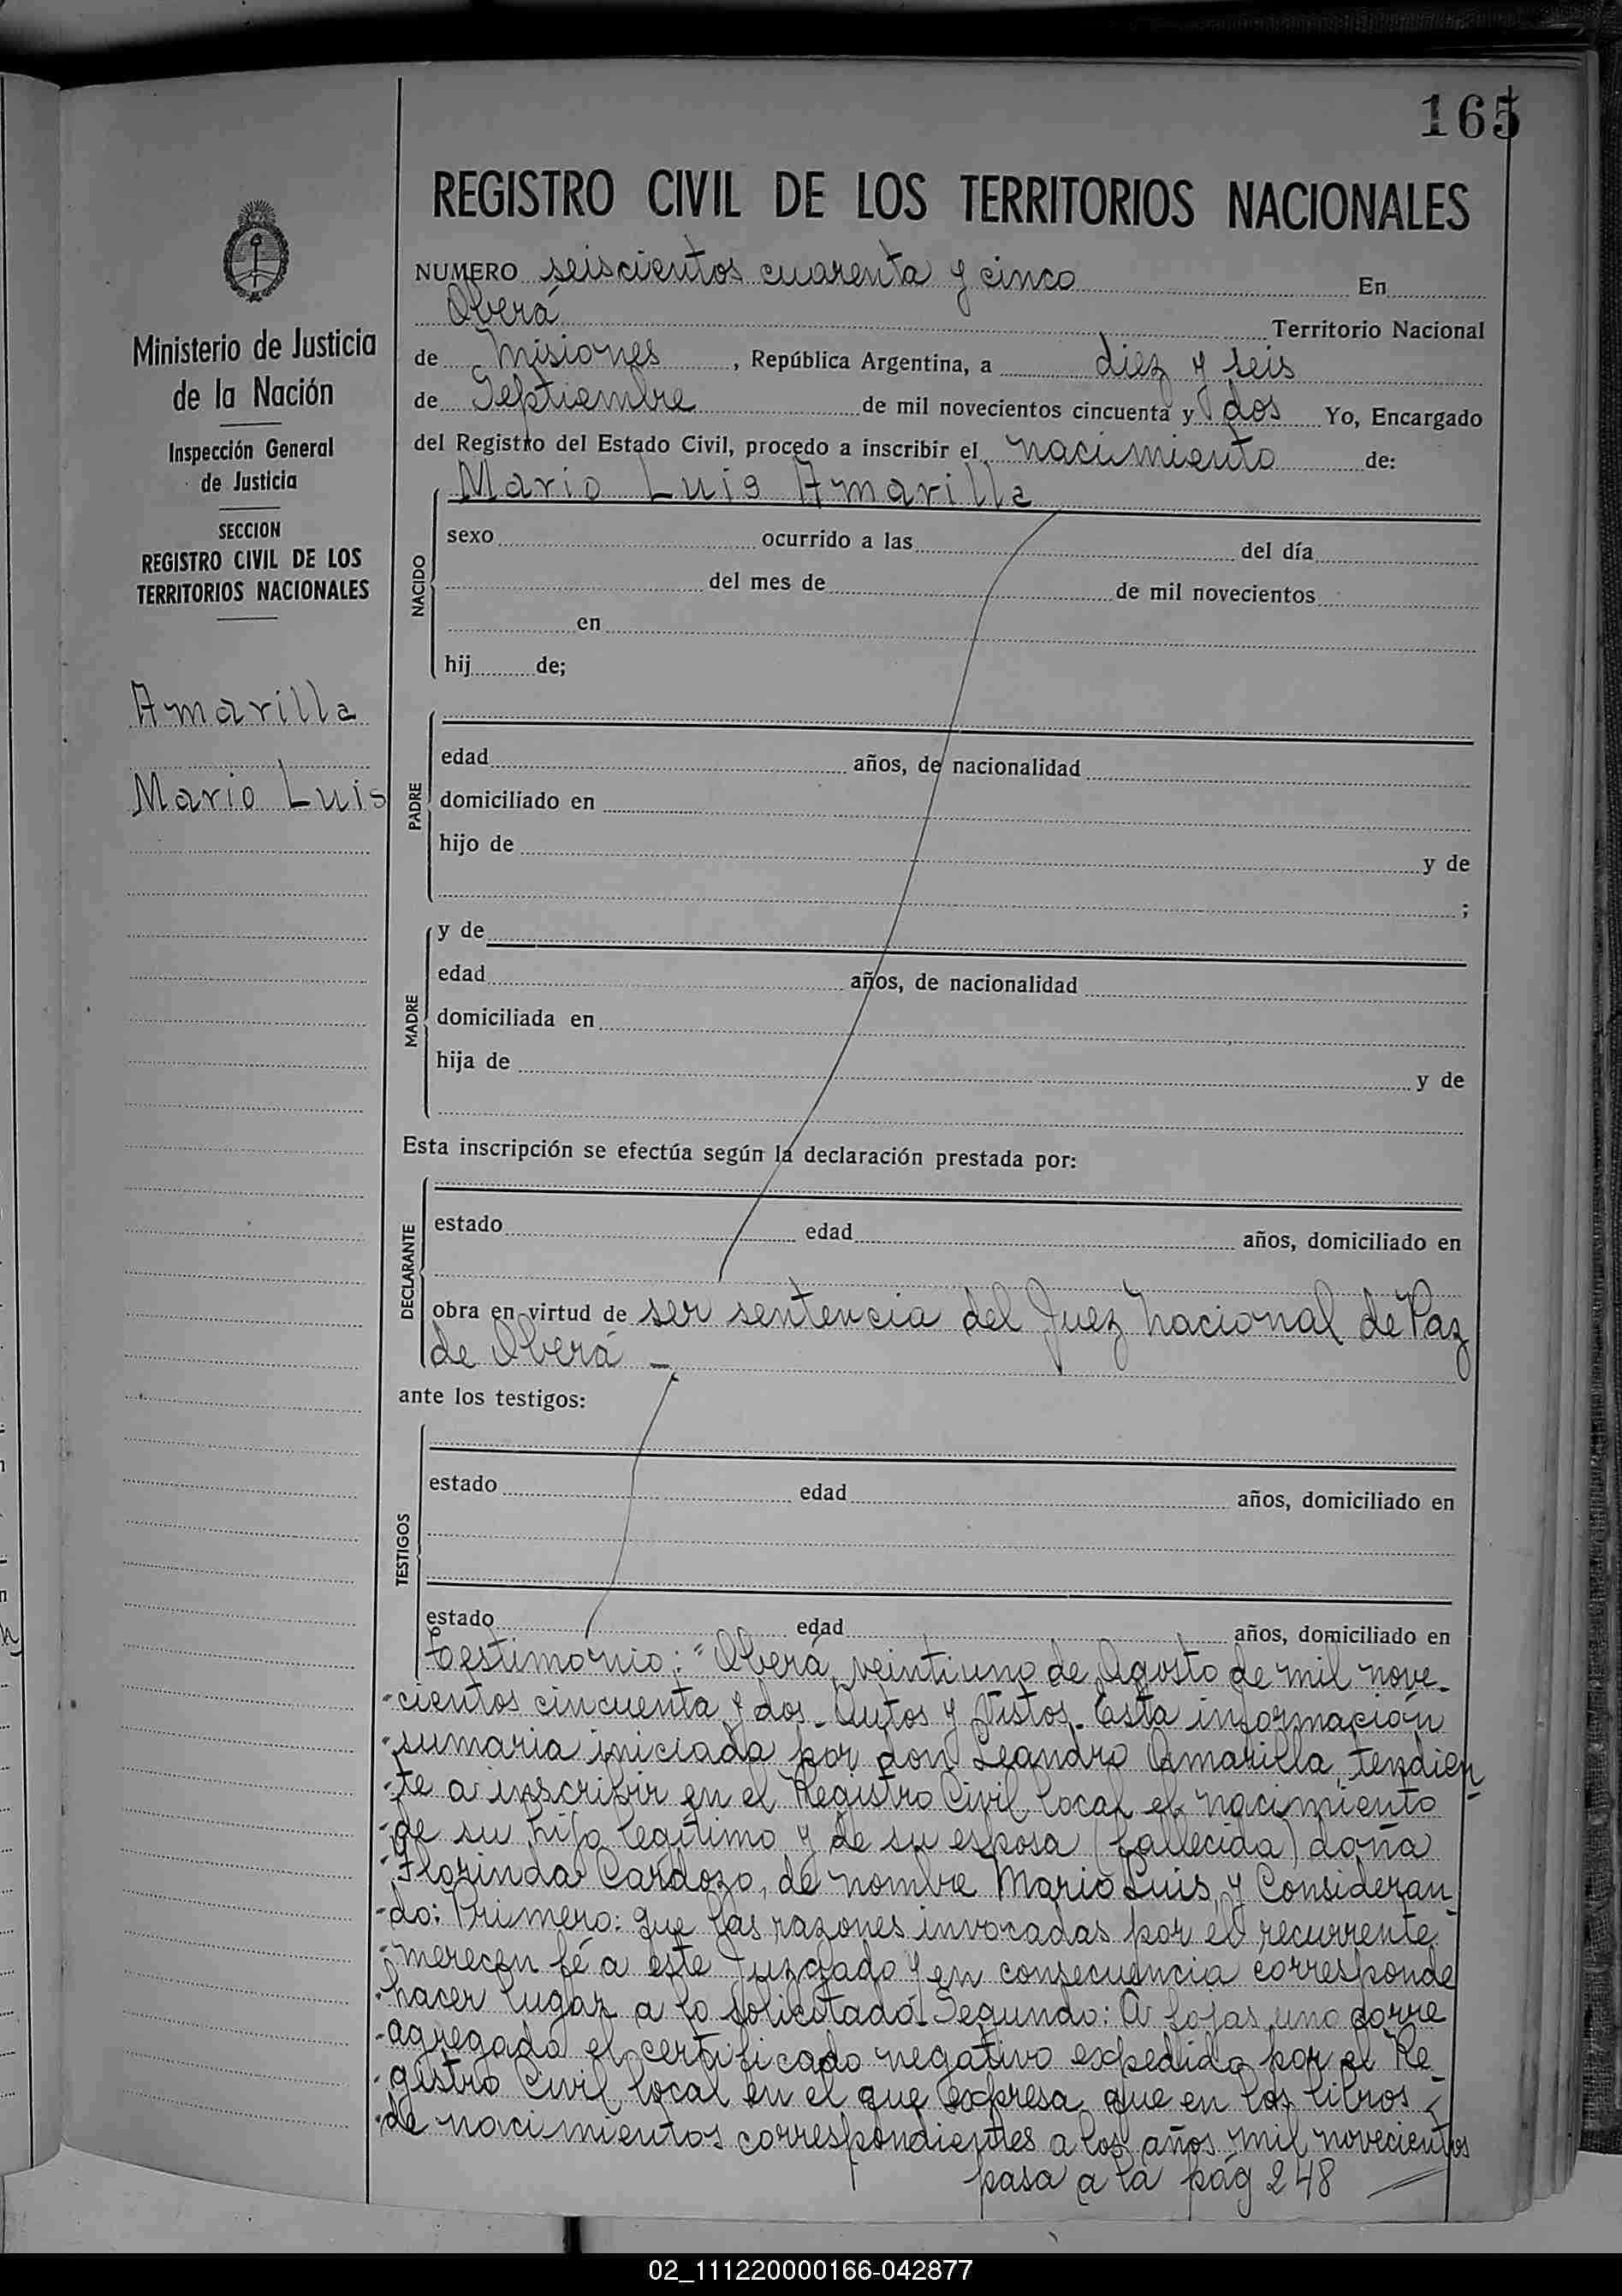 165
REGISTRO CIVIL DE LOS TERRITORIOS NACIONALES
NUMERO seiscientos cuarenta y cinco En
Oberá Territorio Nacional
de Misiones, República Argentina, a diez y seis
de Septiembre de mil novecientos cincuenta y dos Yo, Encargado
del Registro del Estado Civil, procedo a inscribir el nacimiento de:
Mario Luis Amarilla
Ministerio de Justicia
de la Nación
Inspección General
de Justicia
SECCION
REGISTRO CIVIL DE LOS
TERRITORIOS NACIONALES
Amarilla
Mario Luis
NACIDO
sexo ocurrido a las del día
del mes de de mil novecientos
en
hij de;
PADRE
edad años, de nacionalidad
domiciliado en
hijo de y de
;
MADRE
y de
edad años, de nacionalidad
domiciliada en
hija de y de
Esta inscripción se efectúa según la declaración prestada por:
DECLARANTE
estado edad años, domiciliado en
obra en virtud de ser sentencia del Juez Nacional de Paz
de Oberá -
ante los testigos:
TESTIGOS
estado edad años, domiciliado en
estado edad años, domiciliado en
testimonio: "Oberá, veintiuno de Agosto de mil nove-
-cientos cincuenta y dos. Autos y Vistos. Esta información
-sumaria iniciada por don Leandro Amarilla, tendien-
-te a inscribir en el Registro Civil local el nacimiento
-de su hijo legítimo y de su esposa (fallecida) doña
"Florinda Cardozo, de nombre Mario Luis, y Consideran-
-do: Primero: que las razones invocadas por el recurrente
-merecen fé a este Juzgado y en consecuencia corresponde
-hacer lugar a lo solicitado. Segundo: A fojas uno corre
-agregado el certificado negativo expedido por el Re-
-gistro Civil local en el que expresa que en los libros
-de nacimientos correspondientes a los años mil novecientos
pasa a la pág 248
02_111220000166-042877